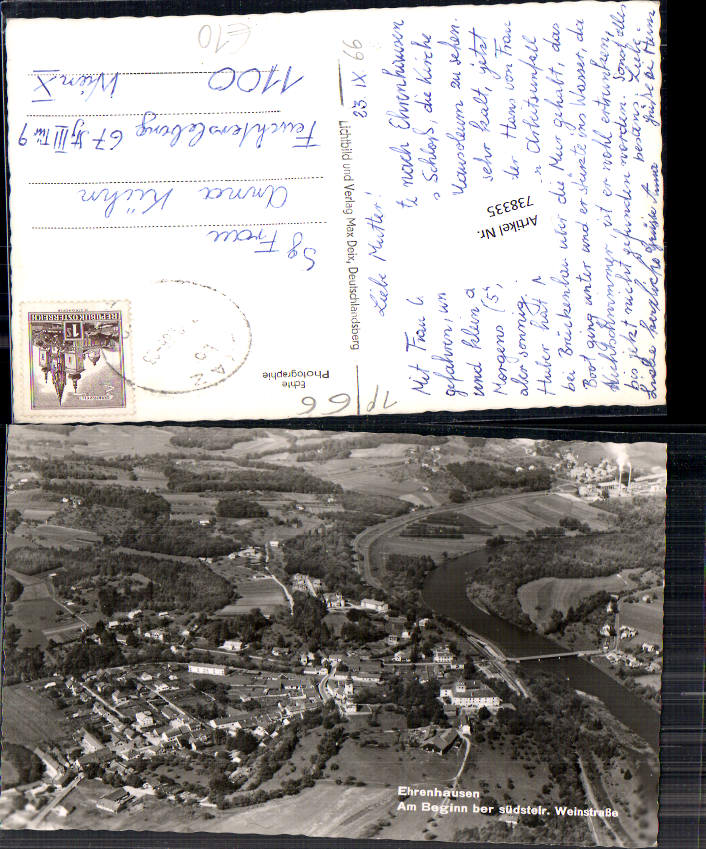 Liebe Mutter!
Mit Frau
te nach Ehrenhausen
gefahren, um
s Schloß, die Kirche
und klein
Mausoleum zu sehen.
Morgens (5°,
sehr kalt, jetzt
aber sonnig.
der Hans von Frau
Huber hat
n Arbeitsunfall
bei Brückenbau über die Mur gehabt, das
Boot ging unter und er stürzte ins Wasser, da
Nichtschwimmer, ist er wohl ertrunken,
bis jetzt nicht gefunden worden. Sonst alles
bestens. Liebe
herzliche Grüße
Artikel Nr.
738335
23. IX 66
Lichtbild und Verlag Max Deix, Deutschlandsberg
Echte
Photographie
66
€10
REPUBLIK ÖSTERREICH
Sg Frau
Anna Kühn
Feuchterslebeng 67 Stg III Tür 9
1100
Wien X
Ehrenhausen
Am Beginn ber südsteir. Weinstraße